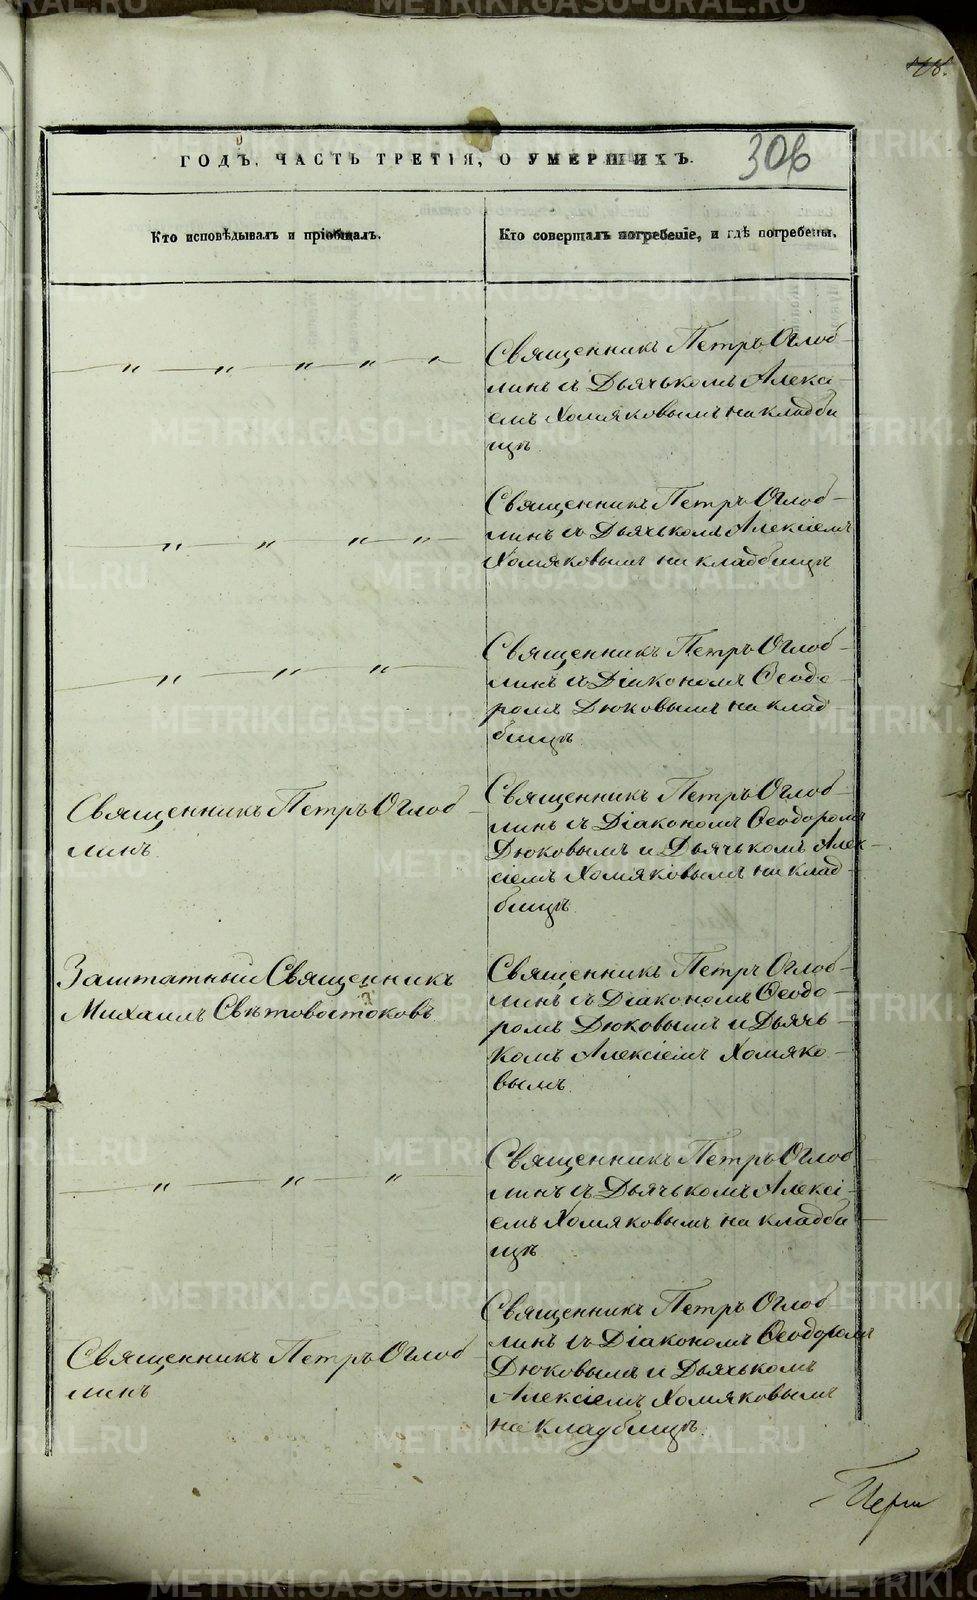 306
ГОДЪ. ЧАСТЬ ТРЕТІЯ, О УМЕРШИХЪ.
Кто исповѣдывалъ и пріобщалъ.
Кто совершалъ погребеніе, и гдѣ погребены.
" " " " "
Священникъ Петръ Оглоб-
линъ съ Дьячькомъ Алексі-
емъ Хомяковымъ на кладби
щѣ
" " " "
Священникъ Петръ Оглоб-
линъ съ Дьячькомъ Алексіемъ
Хомяковымъ на кладбищѣ
" " "
Священникъ Петръ Оглоб-
линъ съ Діакономъ Ѳеодо-
ромъ Дюковымъ на клад
бищѣ
Священникъ Петръ Оглоб-
линъ
Священникъ Петръ Оглоб-
линъ съ Діакономъ Ѳеодоромъ
Дюковымъ и Дьячькомъ Алек-
сіемъ Хомяковымъ на клад-
бищѣ
Заштатный Священникъ
Михаилъ Свѣтовостоковъ
Священникъ Петръ Оглоб-
линъ съ Діакономъ Ѳеодо-
ромъ Дюковымъ и Дьячь-
комъ Алексіемъ Хомяко-
вымъ
" " "
Священникъ Петръ Оглоб
линъ съ Дьячькомъ Алексі-
емъ Хомяковымъ на кладби
щѣ
Священникъ Петръ Оглоб
линъ
Священникъ Петръ Оглоб
линъ съ Діакономъ Ѳеодоромъ
Дюковымъ и Дьячькомъ
Алексіемъ Хомяковымъ
на кладбищѣ.
METRIKI.GASO-URAL.RU